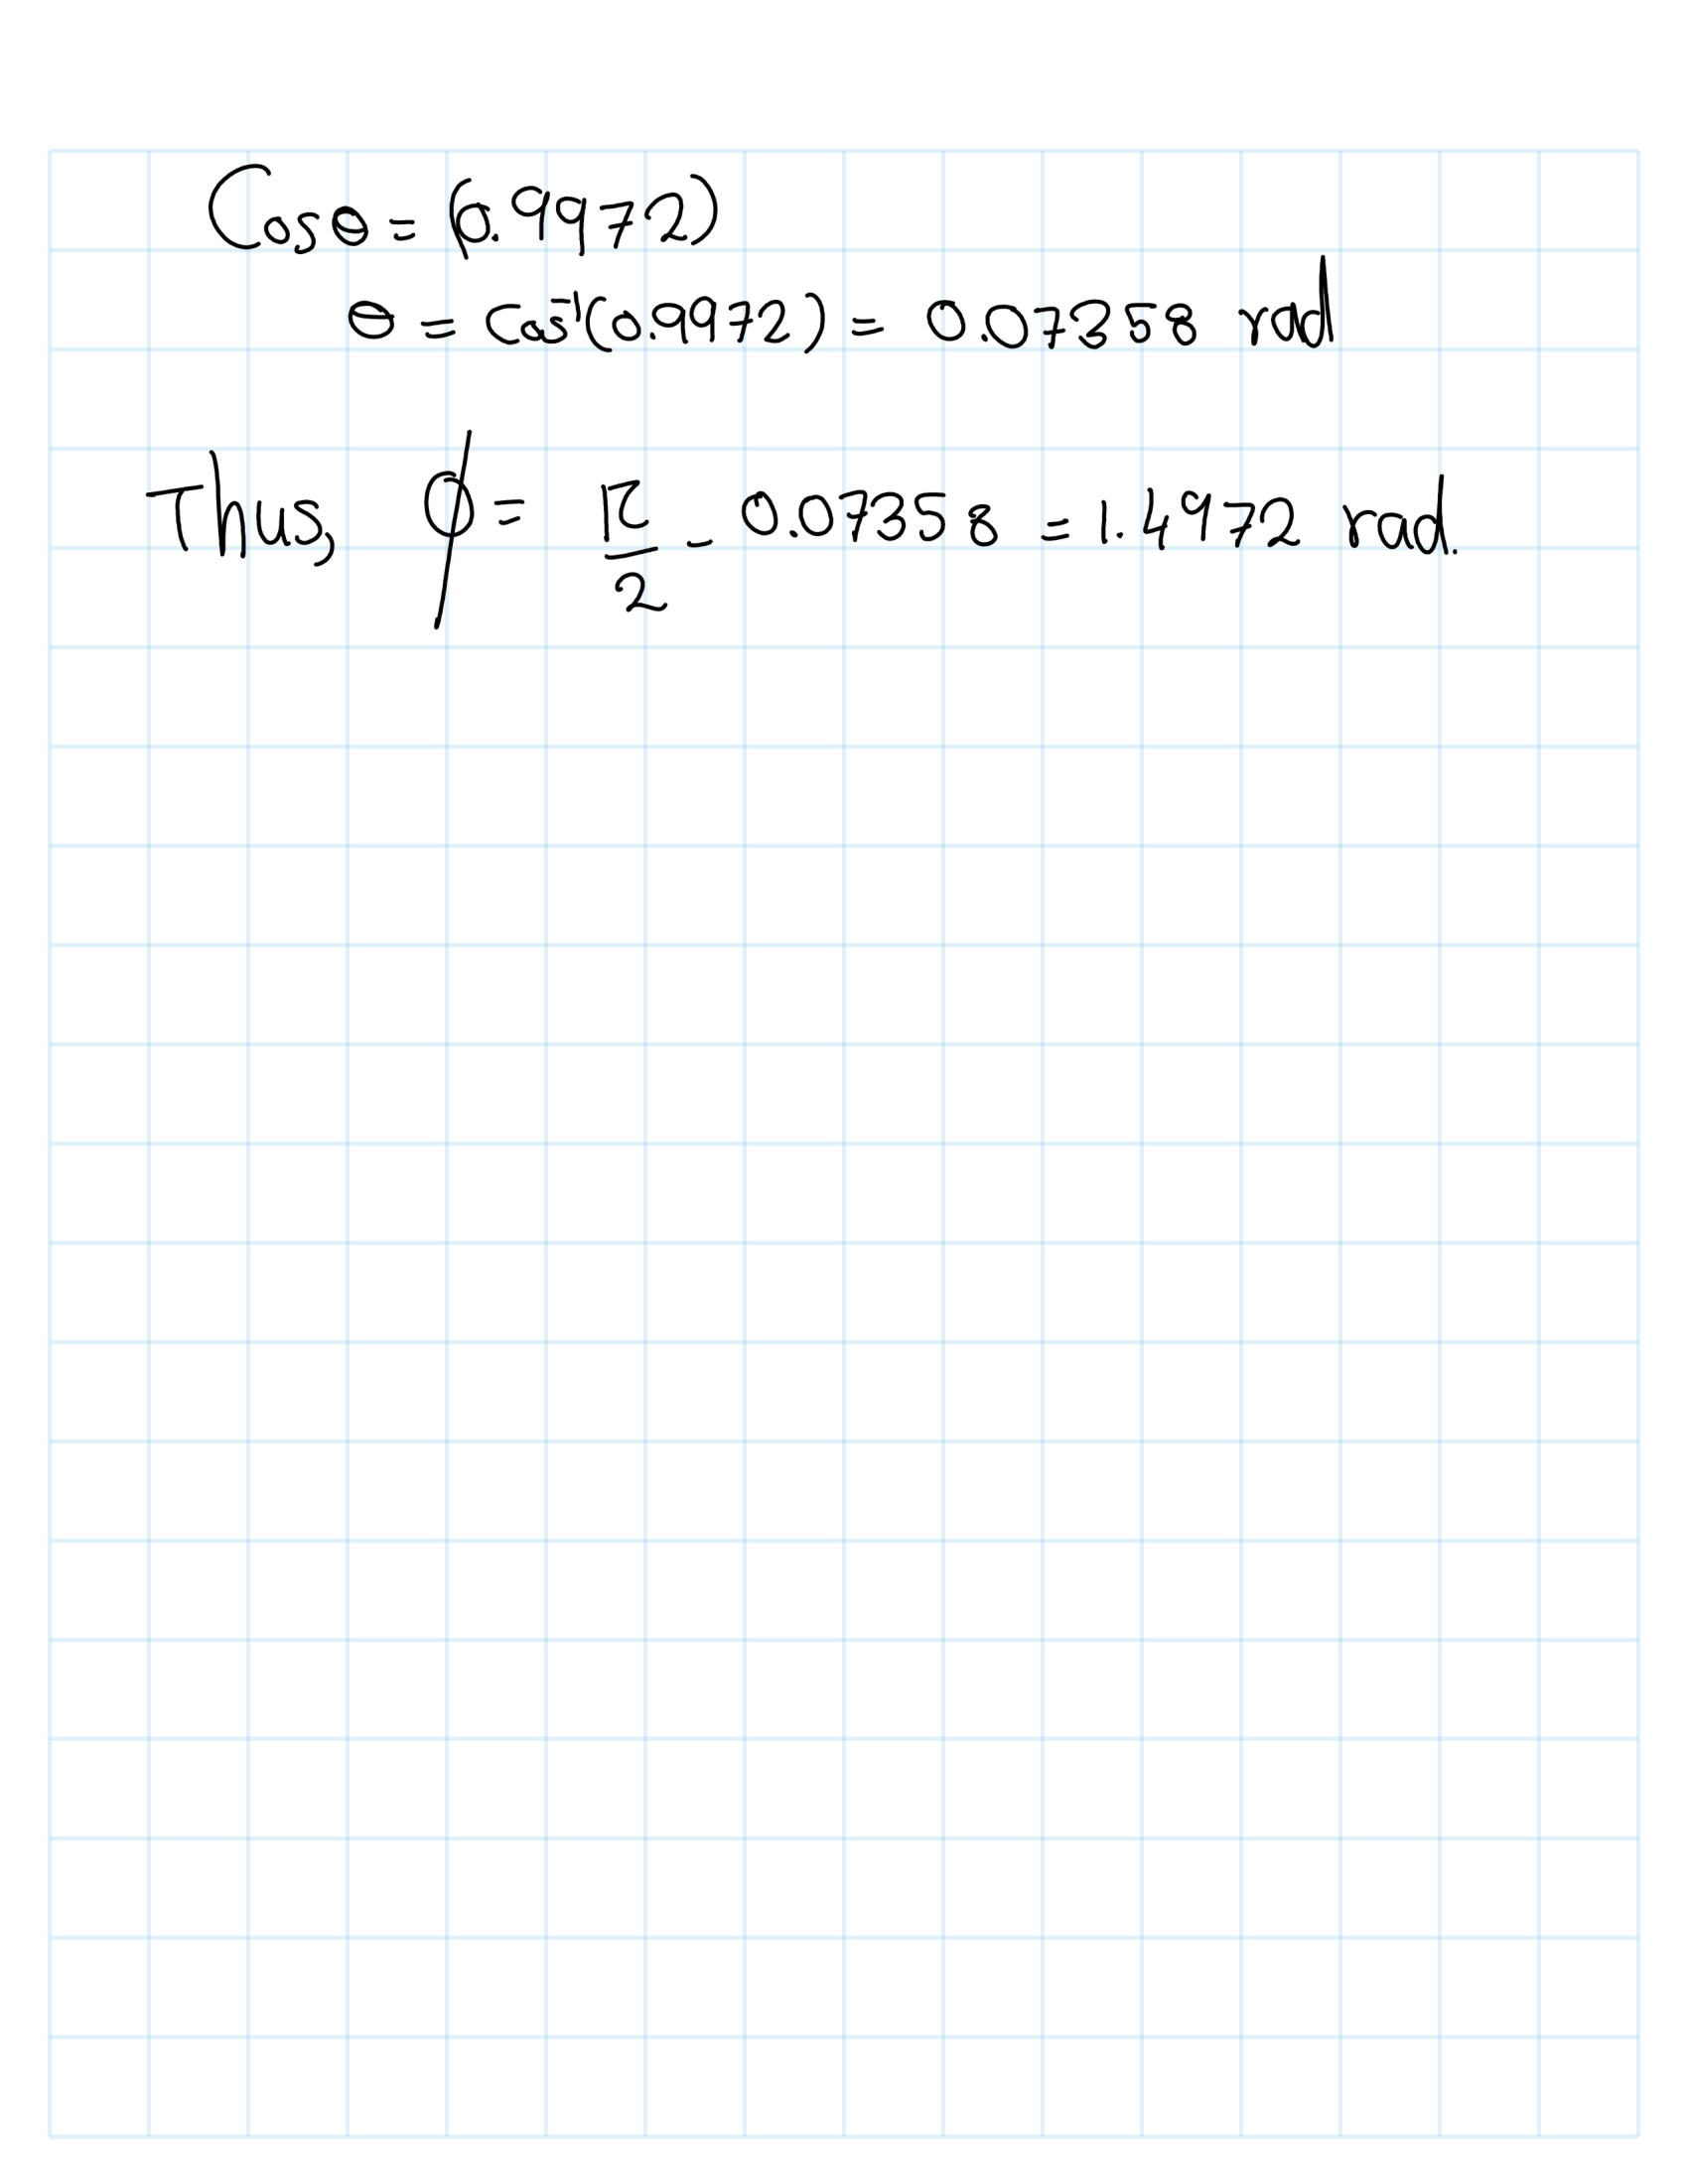 Cosθ = (0.9972)
θ = cos⁻¹(0.9972) = 0.07358 rad
Thus, ϕ = π/2 - 0.07358 = 1.4972 rad.